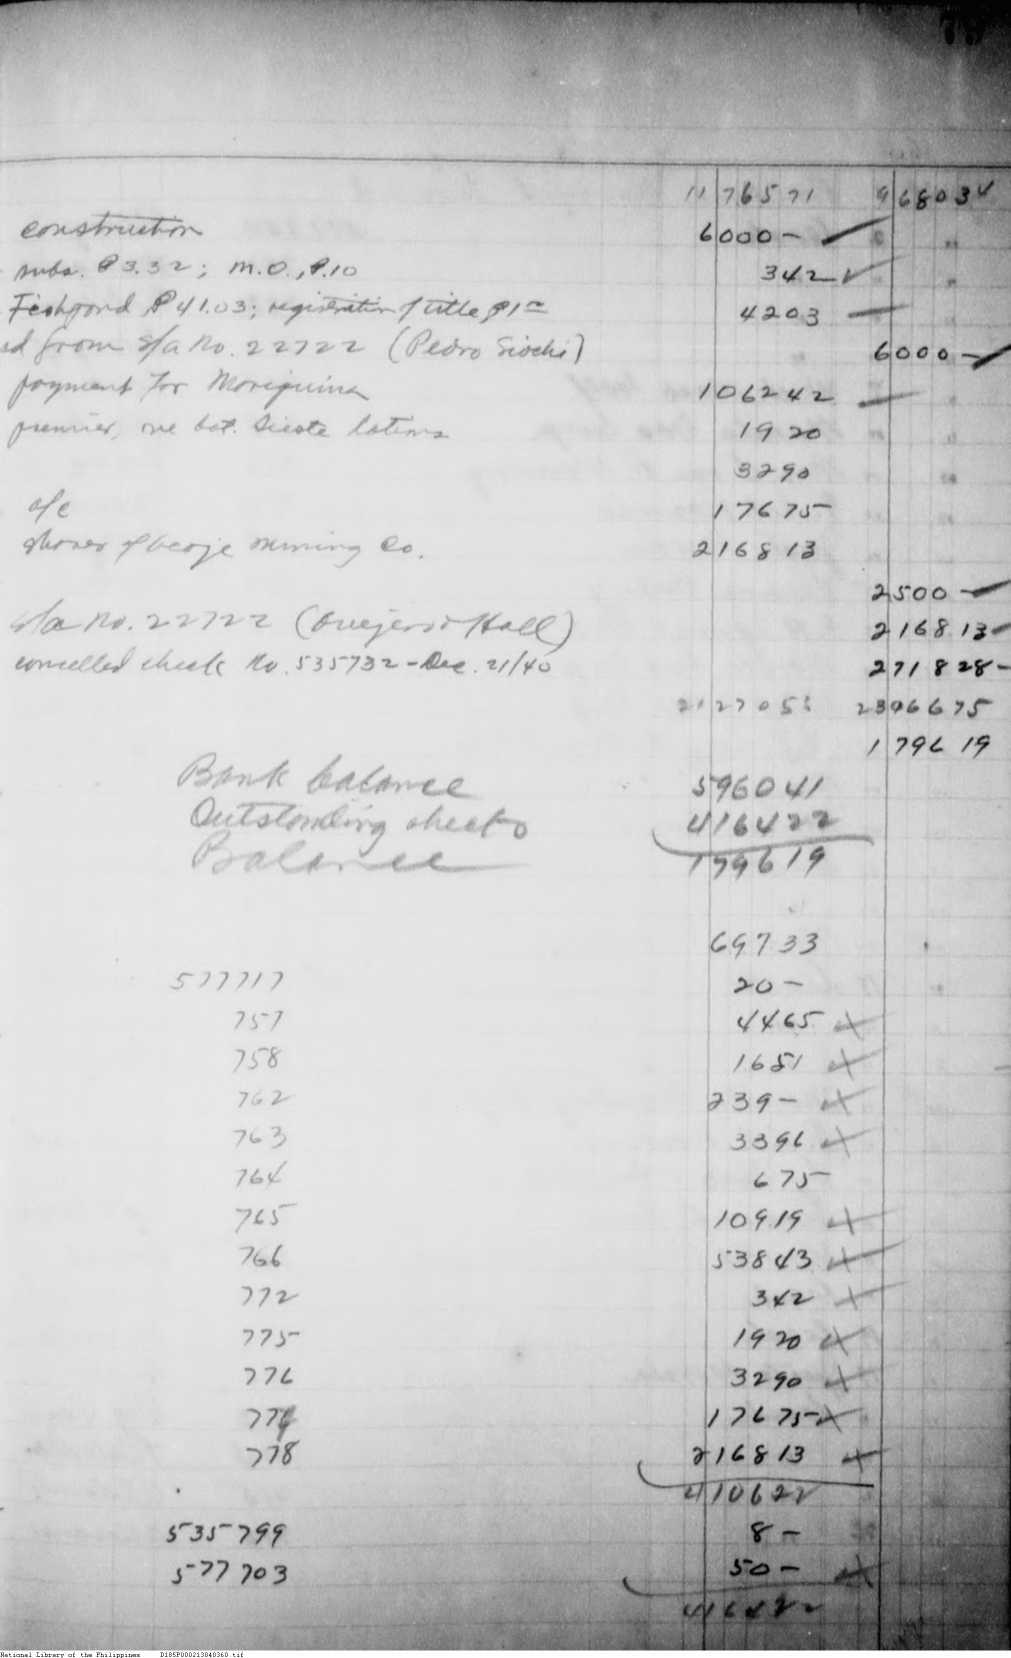 79
11 765 71 9 680 34
construction 6000 –
subs. ₱3.32; M.O., ₱.10 342
Fishpond ₱41.03; registration of title ₱1 4203
ed from s/a No. 22722 (Pedro Siochi) 6000 –
payment for Mariquina 1062 42
premier, one bot. Sieote latima 19 20
32 90
a/c 176 75
shares of Mining Co. 2168 13
2500 –
s/a No. 22722 ( & Hall) 2168 13
cancelled check No. 535732 – Dec. 21/40 2718 28 –
21270 5 23066 75
1796 19
Bank balance 5960 41
Outstanding checks 4164 22
Balance 1796 19
697 33
577717 20 –
757 44 65
758 16 51
762 239 –
763 33 96
764 6 75
765 109 19
766 538 43
772 3 42
775 19 20
776 32 90
777 176 75
778 2168 13
4106 22
535799 8 –
577703 50 –
4164 22
National Library of the Philippines D185P000213040360.tif